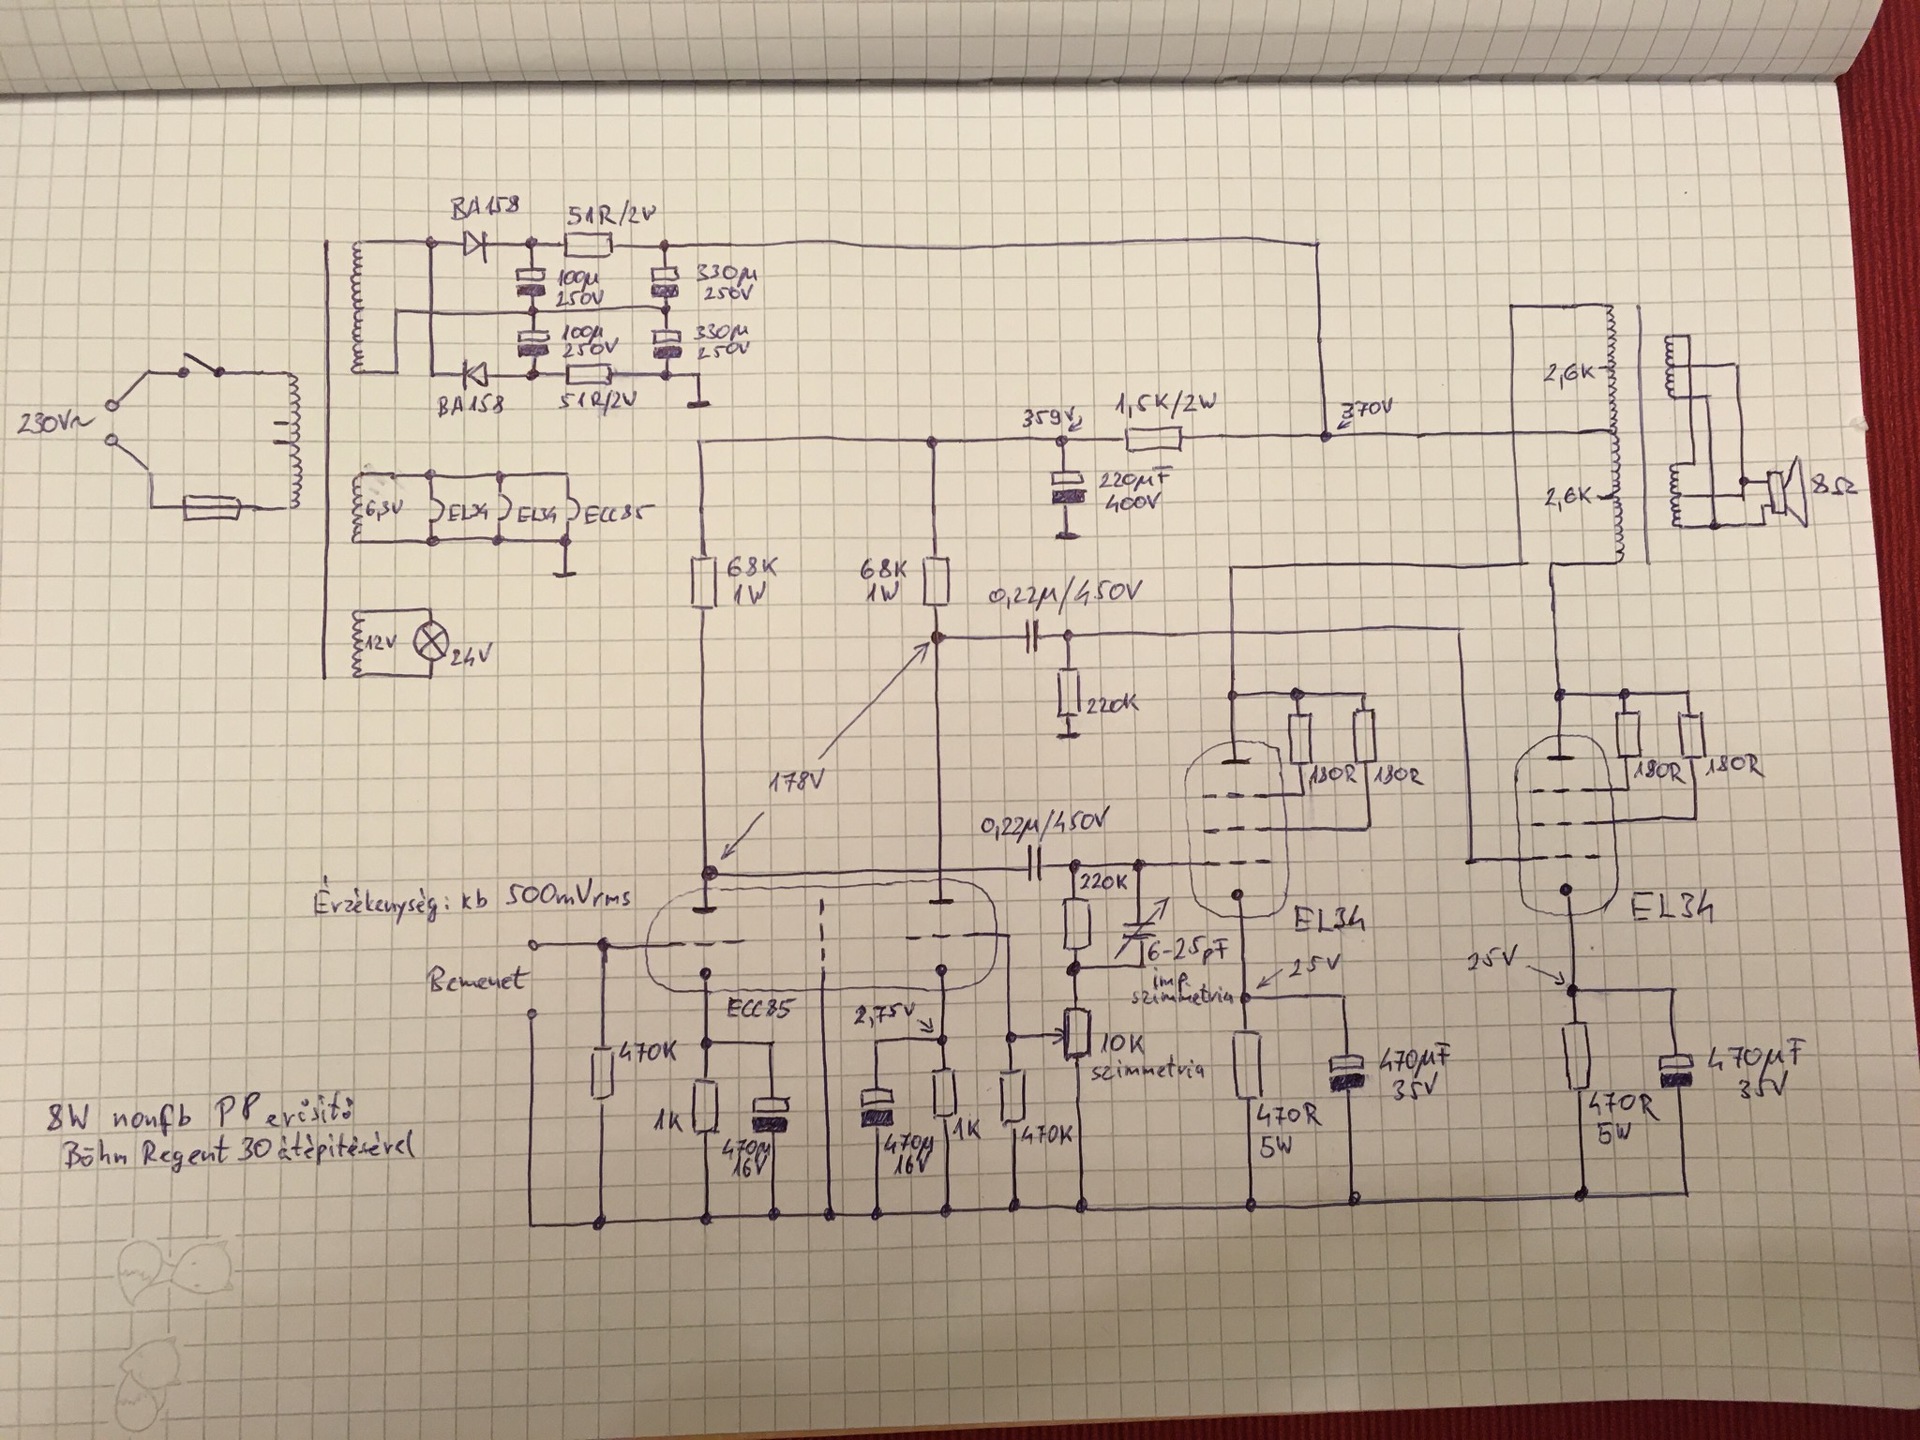 BA158
51R/2W
100µ
250V
330µ
250V
100µ
250V
330µ
250V
BA158
51R/2W
230V~
6,3V
EL34
EL34
ECC85
12V
24V
359V
1,5K/2W
370V
220µF
400V
2,6K
2,6K
8Ω
68K
1W
68K
1W
0,22µ/450V
220K
178V
180R
180R
180R
180R
0,22µ/450V
220K
Érzékenység: kb 500mVrms
Bemenet
EL34
EL34
6-25pF
imp.
szimmetria
25V
25V
ECC85
2,75V
10K
szimmetria
470K
1K
470µ
16V
470µ
16V
1K
470K
470R
5W
470µF
35V
470R
5W
470µF
35V
8W nonfb PP erősítő
Böhm Regent 30 átépítésével